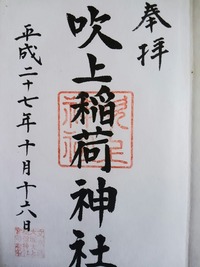 奉拝
吹上稲荷神社
平成二十七年十月十六日